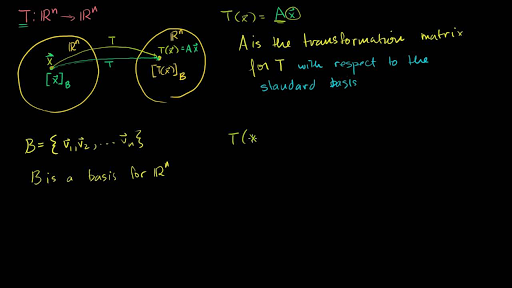 T: ℝⁿ → ℝⁿ
ℝⁿ
T
ℝⁿ
x⃗
T
T(x⃗) = Ax⃗
[x⃗]_B
[T(x⃗)]_B
T(x⃗) = A(x⃗)
A is the transformation matrix
for T with respect to the
standard basis
B = { v⃗₁, v⃗₂, ... v⃗ₙ }
B is a basis for ℝⁿ
T(